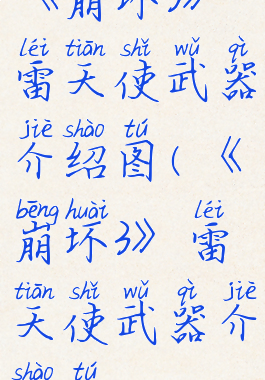 《崩坏3》
léi tiān shǐ wǔ qì
雷天使武器
jiè shào tú
介绍图(《
bēng huài léi
崩坏3》 雷
tiān shǐ wǔ qì jiè
天使武器介
shào tú